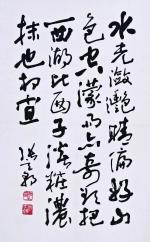 水光瀲灩晴偏好山
色空濛雨亦奇欲把
西湖比西子淡粧濃
抹也相宜